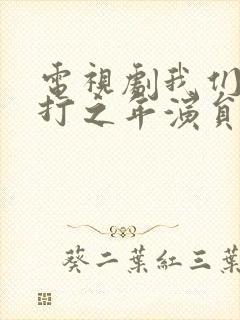 電視劇我们
打之年演員
葵二葉紅三葉